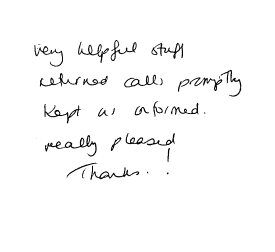 very helpful staff
returned calls promptly
kept us informed.
really pleased!
Thanks.